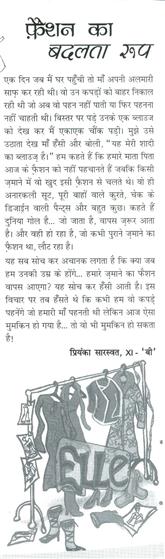 फ़ैशन का
बदलता रूप
एक दिन जब मैं घर पहुँची तो माँ अपनी अलमारी
साफ़ कर रही थी। वो उन कपड़ों को बाहर निकाल
रही थी जो अब वो पहन नहीं पाती या फिर पहनना
नहीं चाहती थी। बिस्तर पर पड़े उनके एक ब्लाउज
को देख कर मैं एकाएक चौंक पड़ी। मुझे उसे
उठाता देख माँ हँसी और बोली, "यह मेरी शादी
का ब्लाउज़ है।" हम कहते हैं कि हमारे माता पिता
आज के फ़ैशन को नहीं पहचानते हैं जबकि किसी
ज़माने में वो खुद इसी फ़ैशन से चलते थे। वो ही
अनारकली सूट, पूरी बाहों वाले कुरते, चेक के
डिज़ाईन वाली पैन्ट्स और बहुत कुछ। कहते हैं
दुनिया गोल है... जो जाता है, वापस ज़रूर आता
है। और वही हो रहा है, जो कभी पुराने ज़माने का
फ़ैशन था, लौट रहा है।
यह सब सोच कर अचानक लगता है कि क्या जब
हम उनकी उम्र के होंगे... हमारे ज़माने का फ़ैशन
वापस आएगा? यह सोच कर हँसी आती है। इस
विचार पर तब हँसते थे कि कभी हम वो कपड़े
पहनेंगे जो हमारी माँ पहनती थी लेकिन आज ऐसा
मुमकिन हो गया है... तो वो भी मुमकिन हो सकता
है!
प्रियंका सारस्वत, XI - 'बी'
ELLE